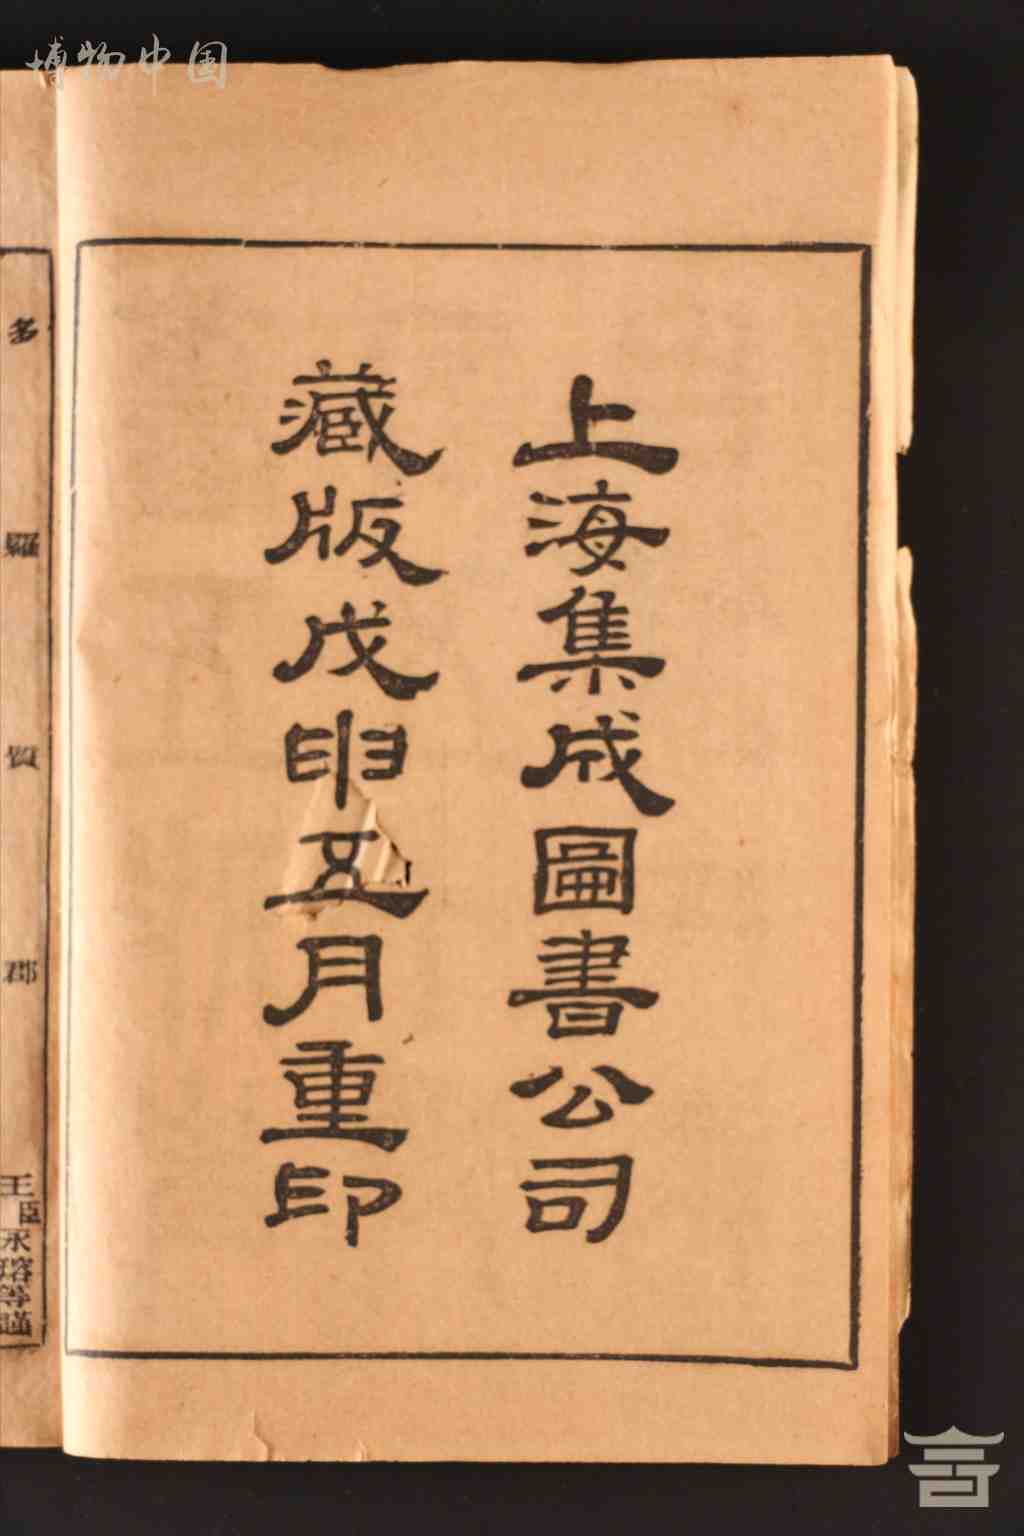 博物中国
上海集成圖書公司
藏版戊申五月重印
多羅質郡
王臣永瑢等謹